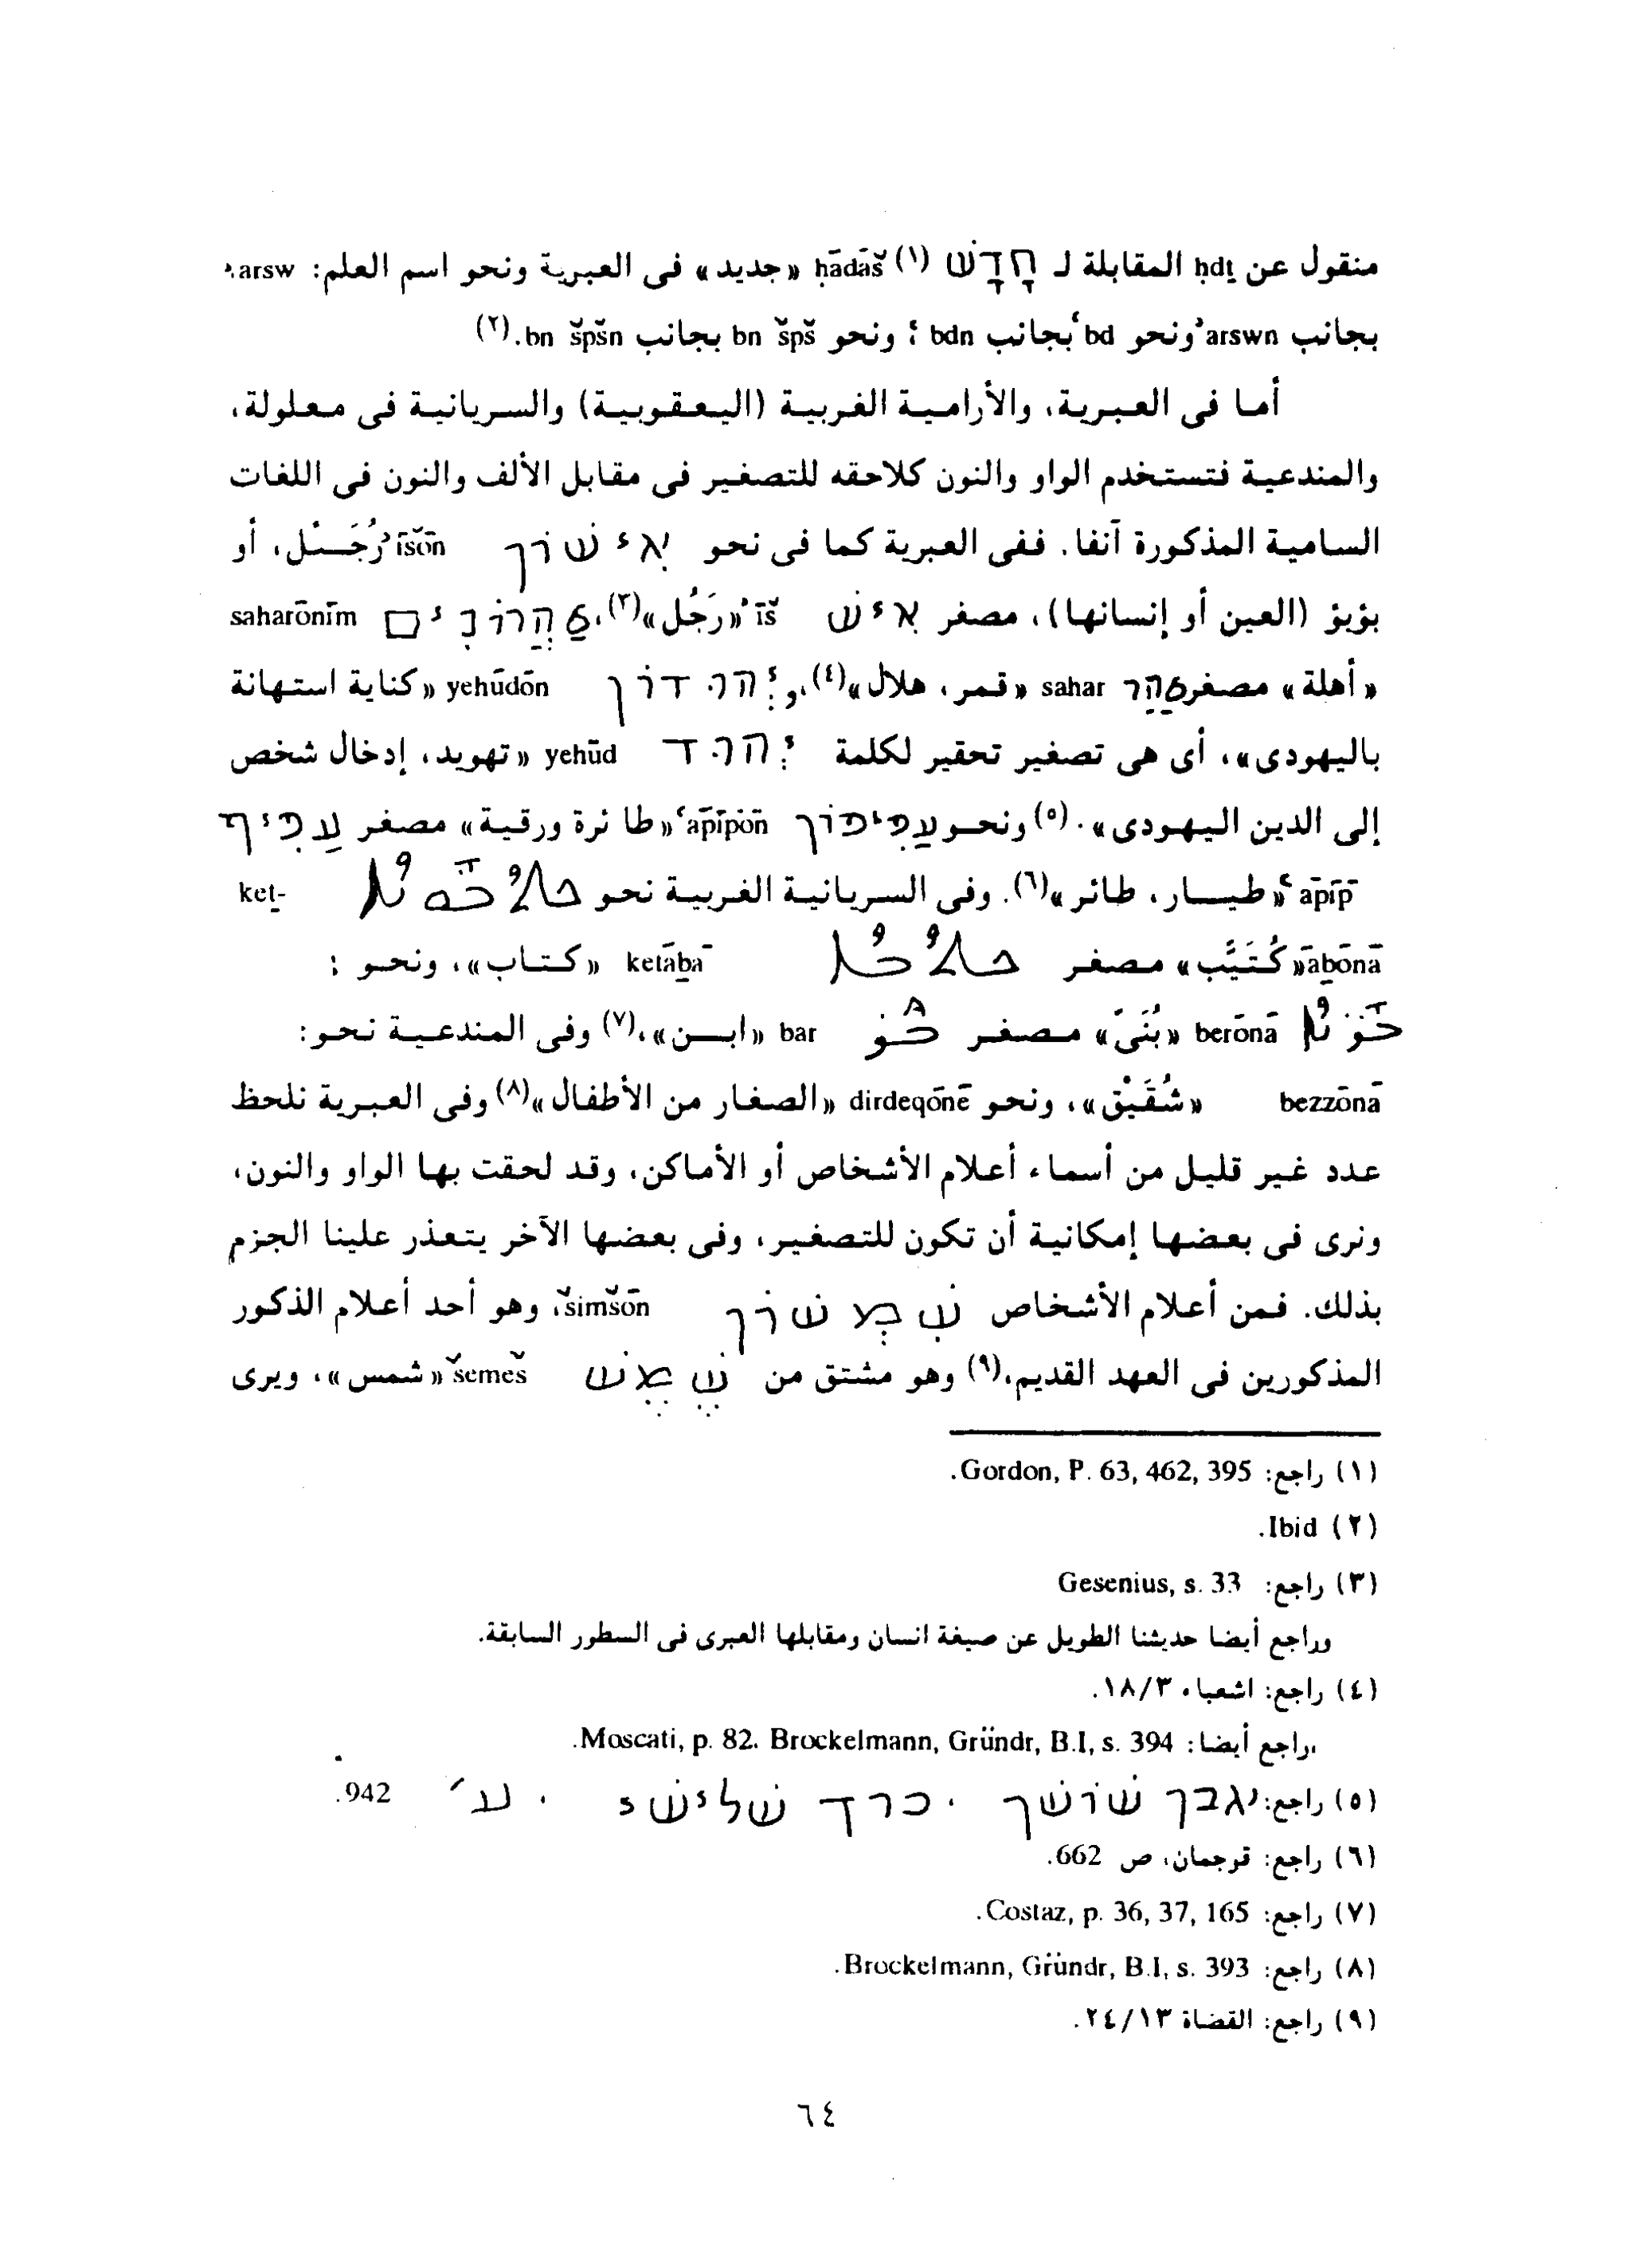 منقول عن ḥdṯ المقابلة لـ חָדָשׁ (١) ḥādāš «جديد» فى العبرية ونحو اسم العلم: ʾarsw.
بجانب ʾarswn ونحو ʿbd بجانب ʿbdn ؛ ونحو bn špš بجانب bn špšn.(٢)
أما فى العبرية، والأرامية الغربية (اليعقوبية) والسريانية فى معلولة،
والمندعية فتستخدم الواو والنون كلاحقه للتصغير فى مقابل الألف والنون فى اللغات
السامية المذكورة آنفا. ففى العبرية كما فى نحو אִישׁוֹן ʾīšōn رُجَـيْل، أو
بؤبؤ (العين أو إنسانها)، مصغر אִישׁ ʾīš «رَجُل»(٣)، שַׂהֲרוֹנִים saharōnīm
«أهلة» مصغر סַהַר sahar «قمر، هلال»(٤)، و יְהוּדוֹן yehūdōn «كناية استهانة
باليهودى»، أى هى تصغير تحقير لكلمة יְהוּד yehūd «تهويد، إدخال شخص
إلى الدين اليهودى».(٥) ونحو עֲפִיפוֹן ʿapīpōn «طا ئرة ورقية» مصغر עָפִיף
ʿāpīp «طيـــار، طائر»(٦). وفى السريانية الغربية نحو ܟܬܳܒܽܘܢܳܐ ket-
ābōnā «كُتَيِّب» مصغر ܟܬܳܒܳܐ ketābā «كـتـاب»، ونحـو :
ܒܪܽܘܢܳܐ berōnā «بُنَىّ» مـصـغـر ܒܰܪ bar «ابـــن»،(٧) وفى المندعـيـة نحـو:
bezzōnā «شُقَيْق»، ونحو dirdeqōnē «الصغار من الأطفال»(٨) وفى العبرية نلحظ
عدد غير قليل من أسماء أعلام الأشخاص أو الأماكن، وقد لحقت بها الواو والنون،
ونرى فى بعضها إمكانية أن تكون للتصغير، وفى بعضها الآخر يتعذر علينا الجزم
بذلك. فمن أعلام الأشخاص שִׁמְשׁוֹן šimšōn، وهو أحد أعلام الذكور
المذكورين فى العهد القديم،(٩) وهو مشتق من שֶׁמֶשׁ šemeš «شمس»، ويرى
(١) راجع: Gordon, P. 63, 462, 395.
(٢) Ibid.
(٣) راجع: Gesenius, s. 33
وراجع أيضا حديثنا الطويل عن صيغة انسان ومقابلها العبرى فى السطور السابقة.
(٤) راجع: اشعياء ١٨/٣.
وراجع أيضا: Moscati, p. 82. Brockelmann, Gründr, B.I, s. 394.
(٥) راجع: אבן שושן . כרך שלישי . עמ׳ 942.
(٦) راجع: قوجمان، ص 662.
(٧) راجع: Costaz, p. 36, 37, 165.
(٨) راجع: Brockelmann, Gründr, B.I, s. 393.
(٩) راجع: القضاة ٢٤/١٣.
٦٤